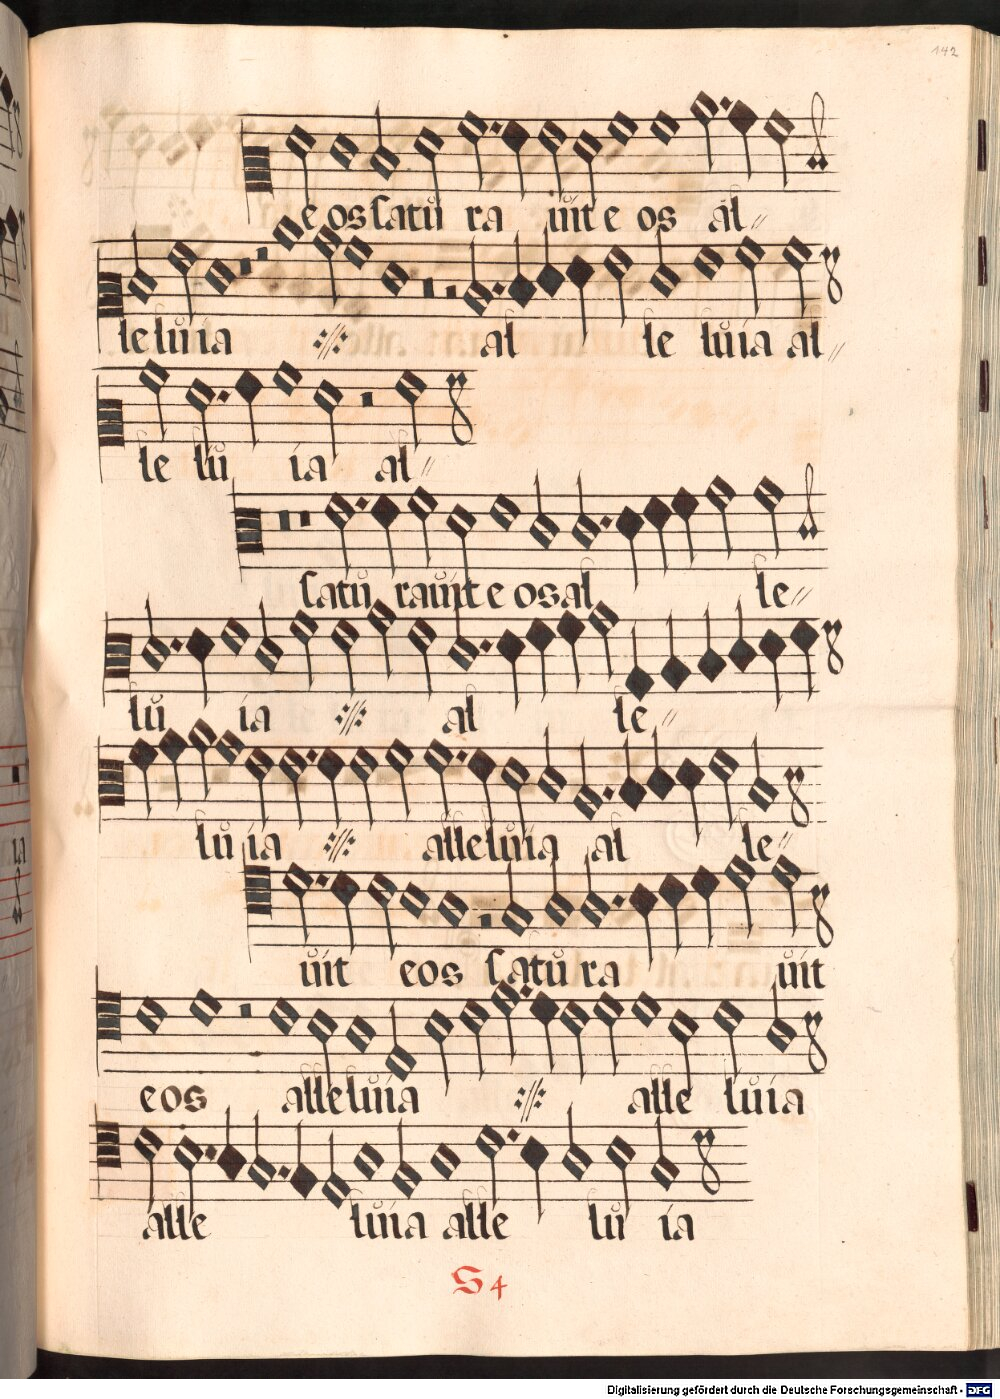 142
e os satu ra uit e os al
le luia al le luia al
le lu ia al
satu rauit e os al le
lu ia al le
lu ia alleluia al le
uit eos satu ra uit
eos alleluia alle luia
alle luia alle lu ia
S 4
Digitalisierung gefördert durch die Deutsche Forschungsgemeinschaft - DFG